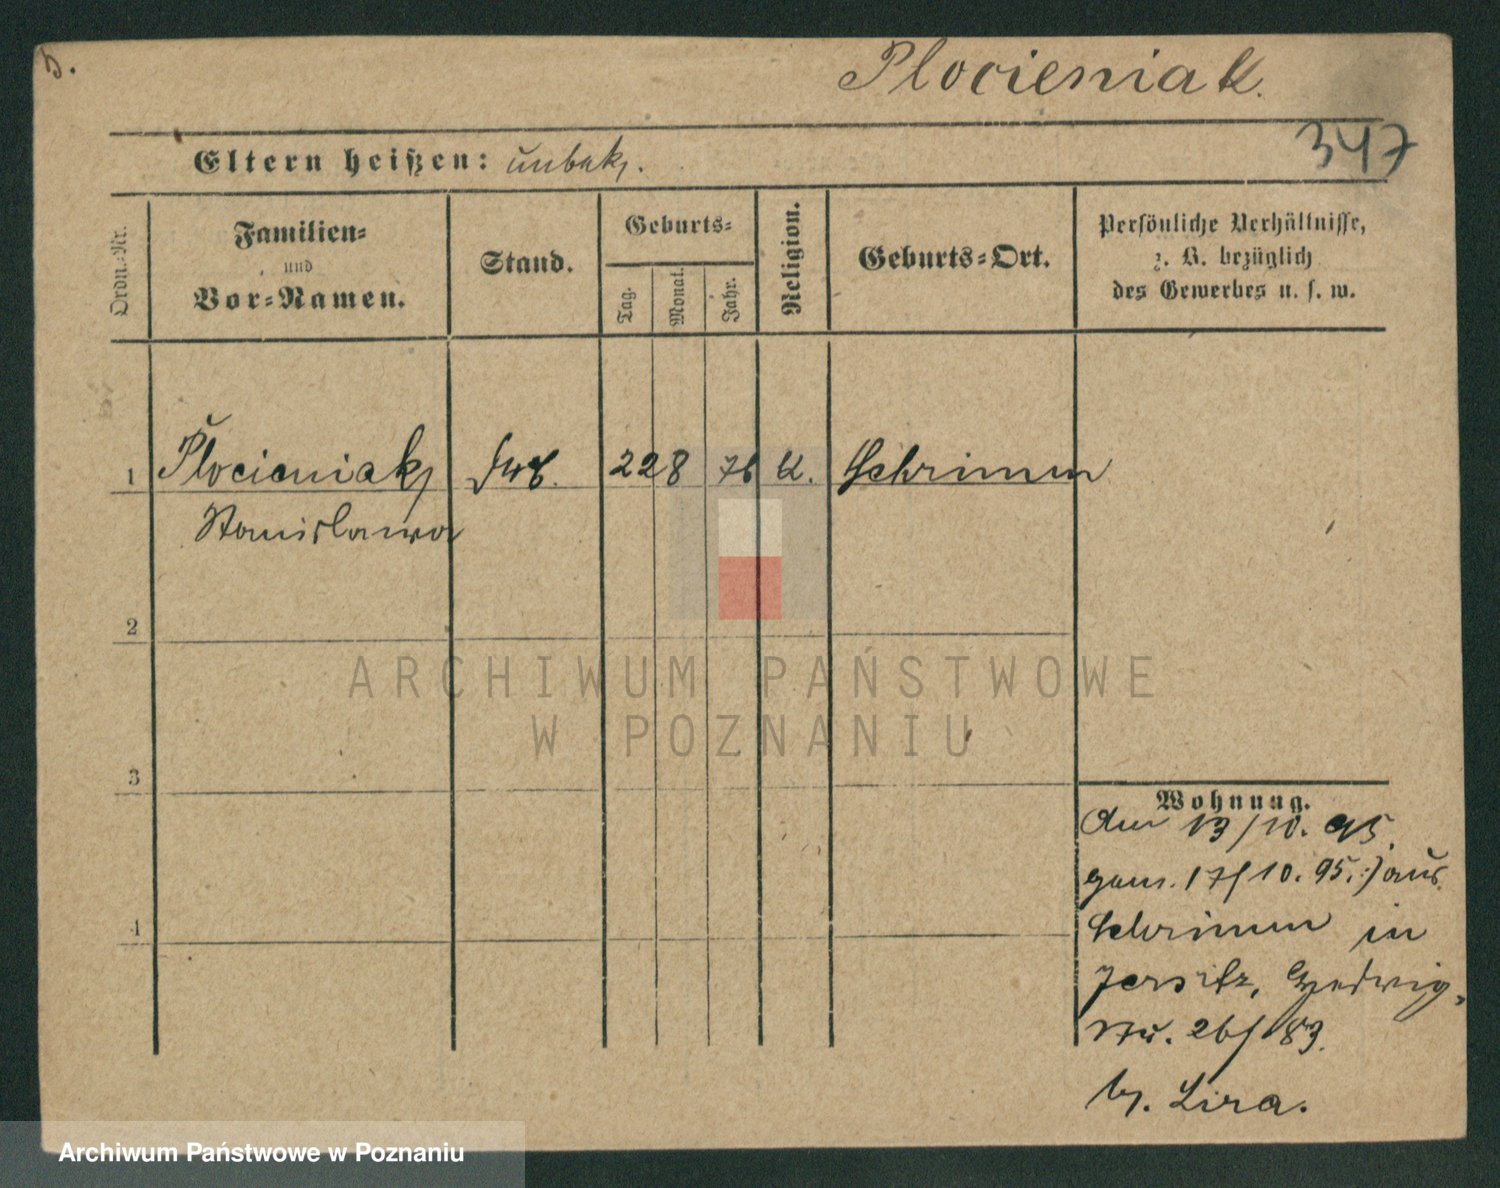 Plocieniak.
347
Eltern heißen: unbek.
Ordn.-Nr.
Familien-
und
Vor-Namen.
Stand.
Geburts-
Tag.
Monat.
Jahr.
Religion.
Geburts-Ort.
Persönliche Verhältnisse,
z. B. bezüglich
des Gewerbes u. s. w.
1 Plocieniak 22 8 76 K. Schrimm
Stanislawa
2
3
4
Wohnung.
Am 13/10. 95
gem. 17/10. 95.:) aus
Schrimm in
Jersitz, Hedwig-
Str. 26/
b. Lira.
ARCHIWUM PAŃSTWOWE
W POZNANIU
Archiwum Państwowe w Poznaniu